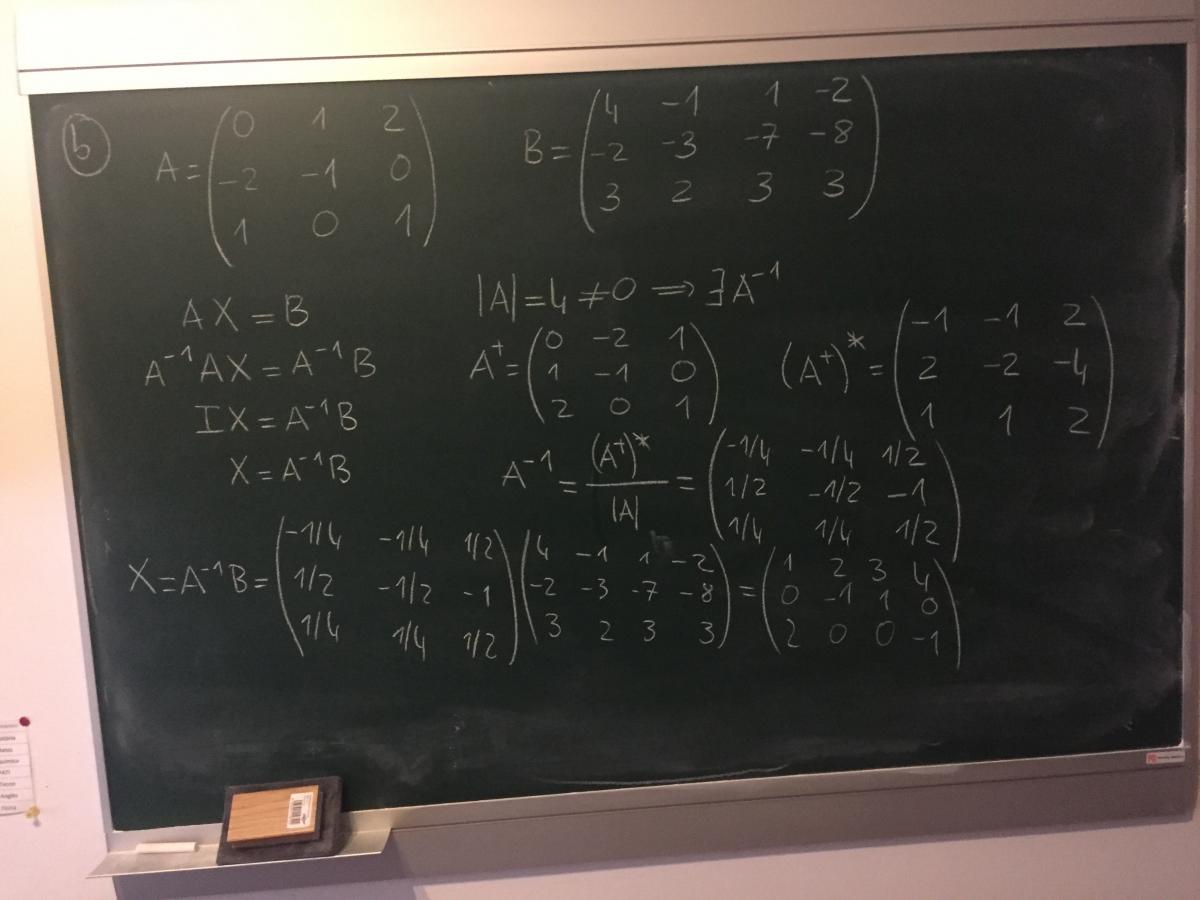 b
A = ( 0 1 2
-2 -1 0
1 0 1 )
B = ( 4 -1 1 -2
-2 -3 -7 -8
3 2 3 3 )
AX = B
A⁻¹AX = A⁻¹B
IX = A⁻¹B
X = A⁻¹B
|A| = 4 ≠ 0 ⟹ ∃A⁻¹
Aᵗ = ( 0 -2 1
1 -1 0
2 0 1 )
(Aᵗ)* = ( -1 -1 2
2 -2 -4
1 1 2 )
A⁻¹ = (Aᵗ)* / |A| = ( -1/4 -1/4 1/2
1/2 -1/2 -1
1/4 1/4 1/2 )
X = A⁻¹B = ( -1/4 -1/4 1/2
1/2 -1/2 -1
1/4 1/4 1/2 )
( 4 -1 1 -2
-2 -3 -7 -8
3 2 3 3 )
= ( 1 2 3 4
0 -1 1 0
2 0 0 -1 )